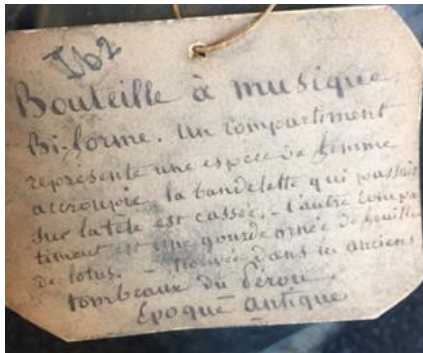 Ib2
Bouteille à musique.
Bi-forme. Un compartiment
représente une espèce de femme
accroupie, la bandelette qui passait
sur la tête est cassée. - l'autre compar
timent est une gourde ornée de feuilles
de lotus. - trouvée dans les anciens
tombeaux du Pérou.
Époque antique